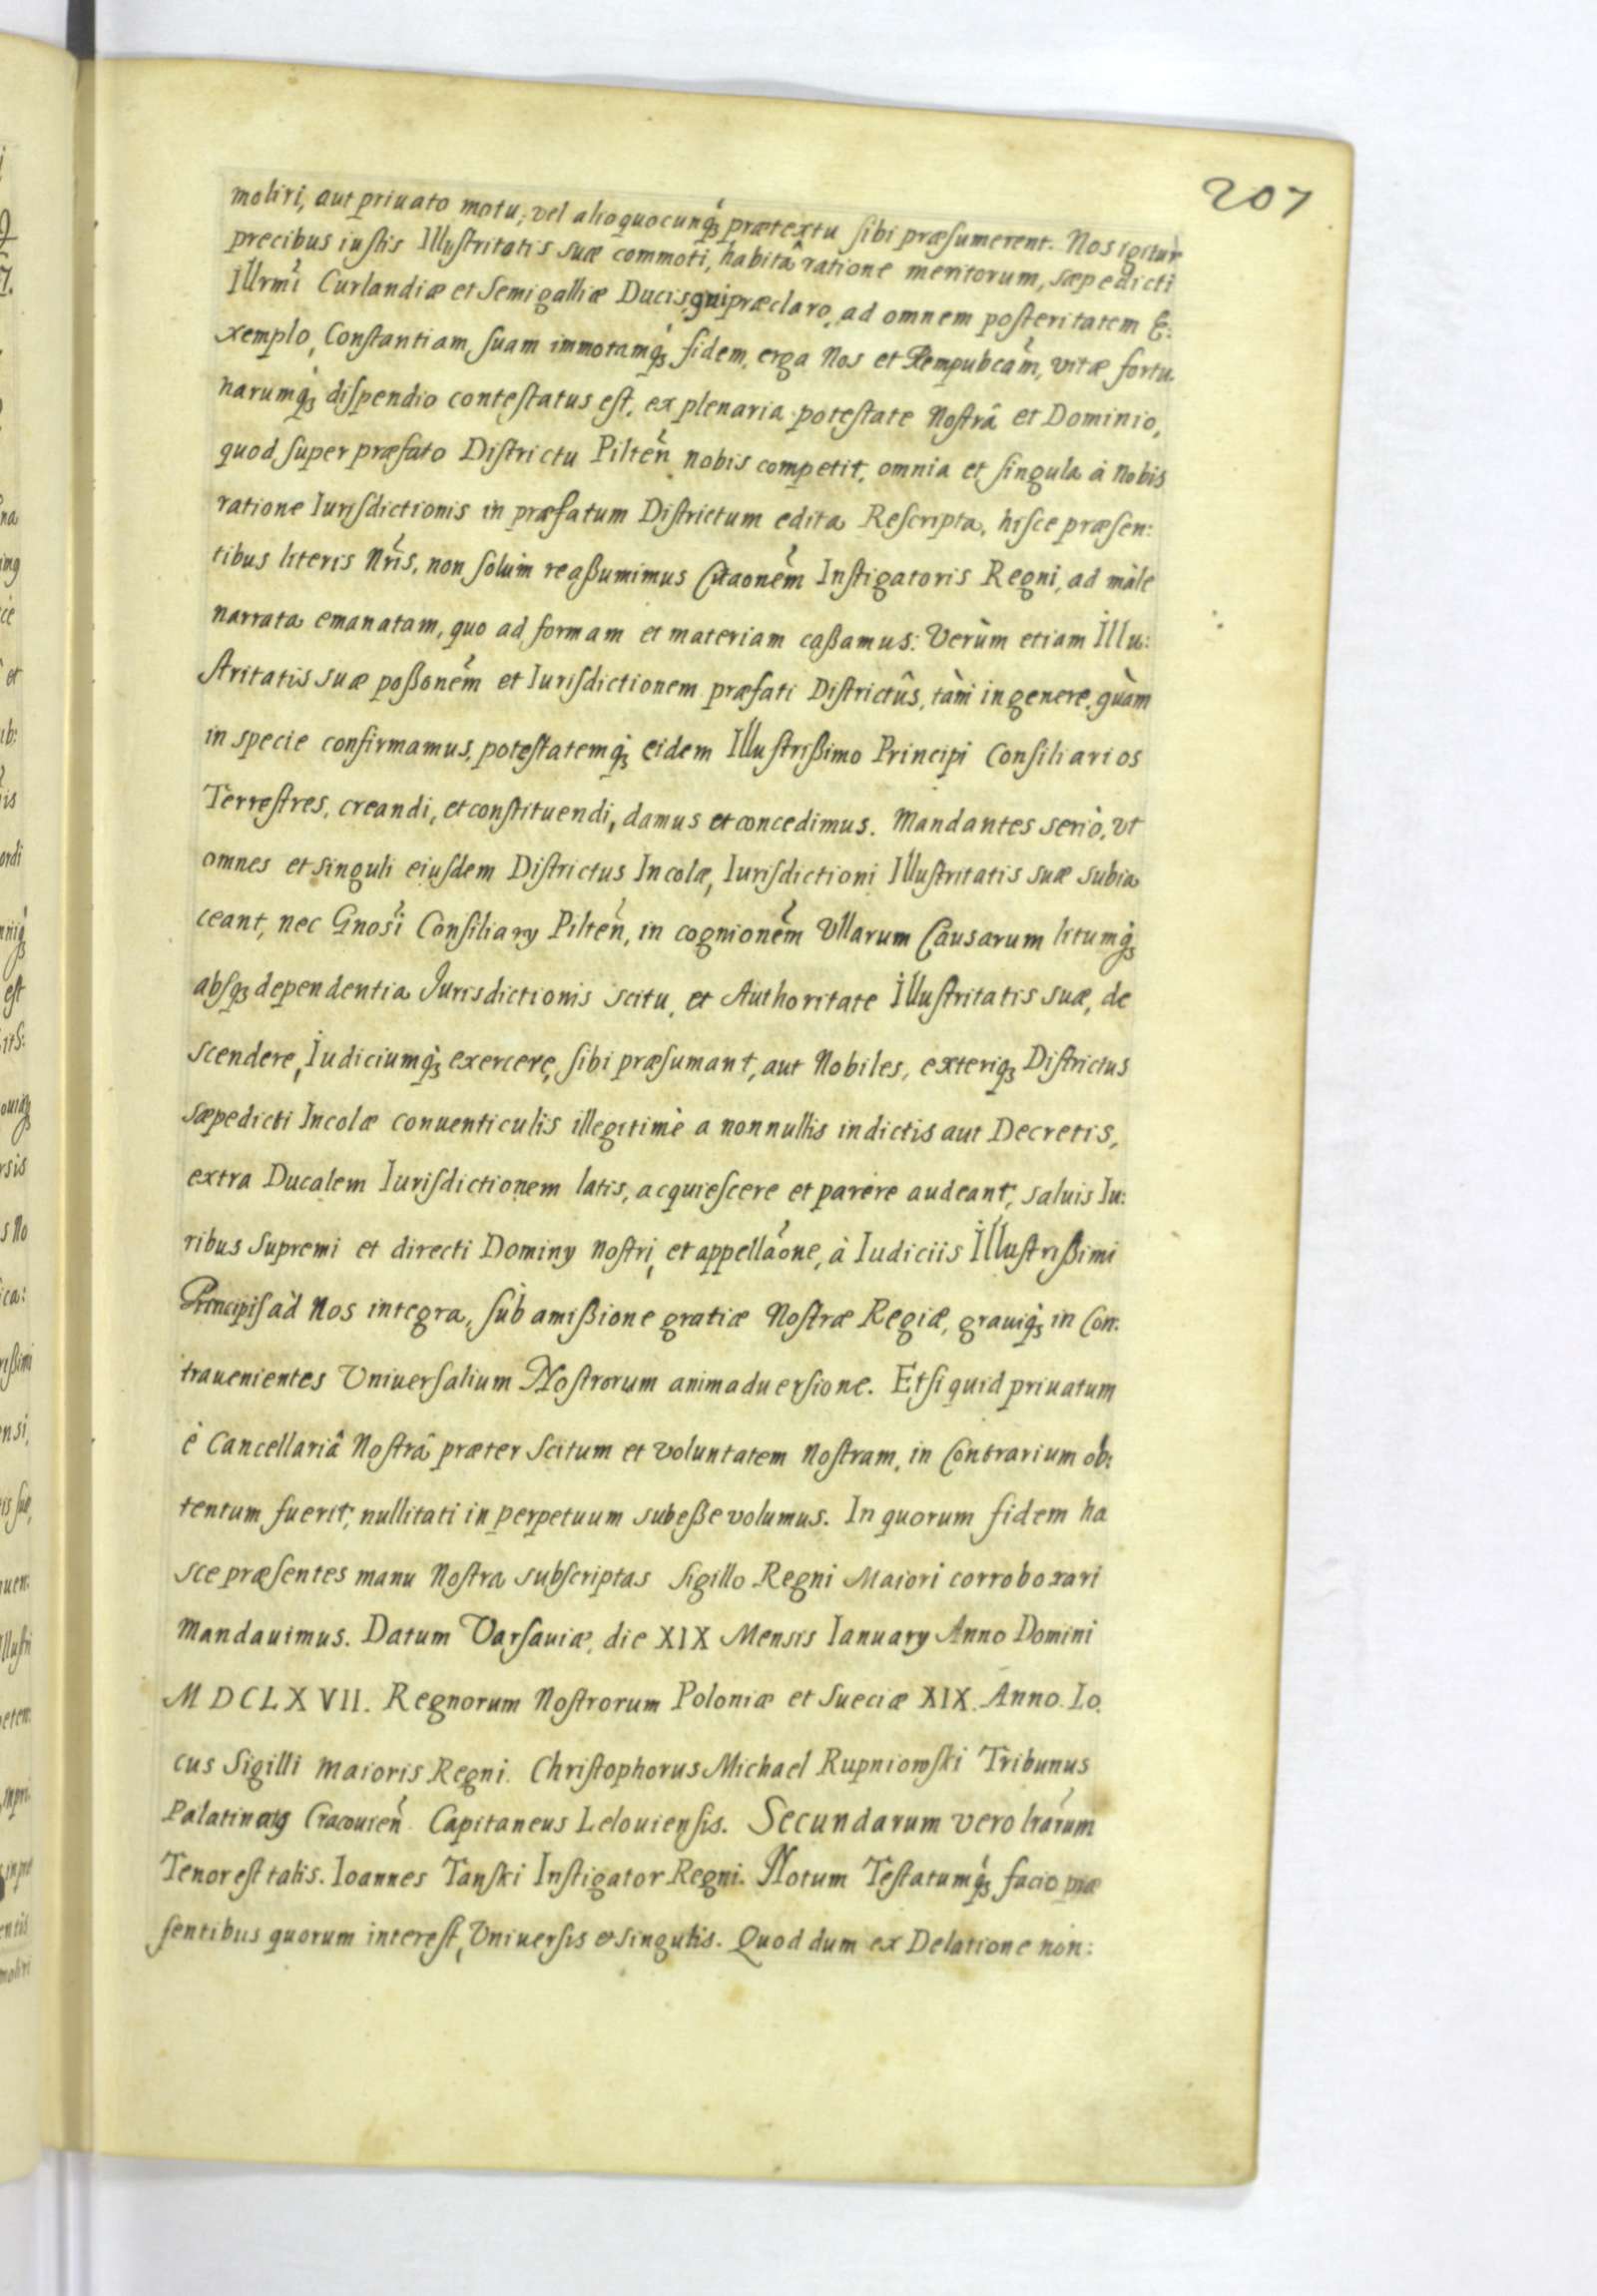 207
moliri, aut priuato motu, vel alio quocunq́ꝫ prætextu sibi præsumerent. Nos igitur
precibus iustis Illustritatis suæ commoti, habitâ ratione meritorum, sæpedicti
Illrmi Curlandiæ et Semigalliæ Ducis, qui præclaro, ad omnem posteritatem E:
xemplo, Constantiam suam immotamq́ꝫ fidem, erga Nos et Rempubcam, vitæ fortu,
narumq́ꝫ dispendio contestatus est, ex plenaria potestate Nostrâ et Dominio,
quod super præfato Districtu Pilten nobis competit, omnia et singula à Nobis
ratione Iurisdictionis in præfatum Districtum edita Rescripta, hisce præsen:
tibus literis Nris, non solùm reaßumimus Citaonem Instigatoris Regni, ad màle
narrata emanatam, quo ad formam et materiam caßamus: Verùm etiam Illu:
stritatis suæ poßonem et Iurisdictionem præfati Districtûs, tàm in genere, quàm
in specie confirmamus, potestatemq́ꝫ eidem Illustrißimo Principi Consiliarios
Terrestres, creandi, et constituendi, damus et concedimus. Mandantes seriò, vt
omnes et singuli eiusdem Districtus Incolæ, Iurisdictioni Illustritatis suæ subia
ceant, nec Gnosi Consiliarÿ Pilten, in cognionem Vllarum Causarum litumq́ꝫ
absqꝫ dependentia Jurisdictionis scitu, et Authoritate Illustritatis suæ, de
scendere, Iudiciumq́ꝫ exercere, sibi præsumant, aut Nobiles, exteriqꝫ Districtus
sæpedicti Incolæ conuenticulis illegitimè a nonnullis indictis aut Decretis,
extra Ducalem Iurisdictionem latis, acquiescere et parere audeant; saluis Iu:
ribus Supremi et directi Dominÿ nostri, et appellaone, à Iudiciis Illustrißimi
Principis ad Nos integra, sub amißione gratiæ Nostræ Regiæ, grauiq́ꝫ in Con:
trauenientes Vniuersalium Nostrorum animaduersione. Et si quid priuatum
è Cancellariâ Nostrâ præter Scitum et voluntatem Nostram, in Contrarium ob:
tentum fuerit; nullitati in perpetuum subeße volumus. In quorum fidem ha
sce præsentes manu Nostra subscriptas Sigillo Regni Maiori corroborari
mandauimus. Datum Varsauiæ, die XIX Mensis Ianuarÿ Anno Domini
MDCLXVII. Regnorum Nostrorum Poloniæ et Sueciæ XIX. Anno. Lo,
cus Sigilli maioris Regni. Christophorus Michael Rupniowski Tribunus
Palatinatꝰ Cracouien Capitaneus Lelouiensis. Secundarum vero lrarum
Tenor est talis. Ioannes Tanski Instigator Regni. Notum Testatumq́ꝫ facio præ
sentibus quorum interest, Vniuersis & singulis. Quod dum ex Delatione non: